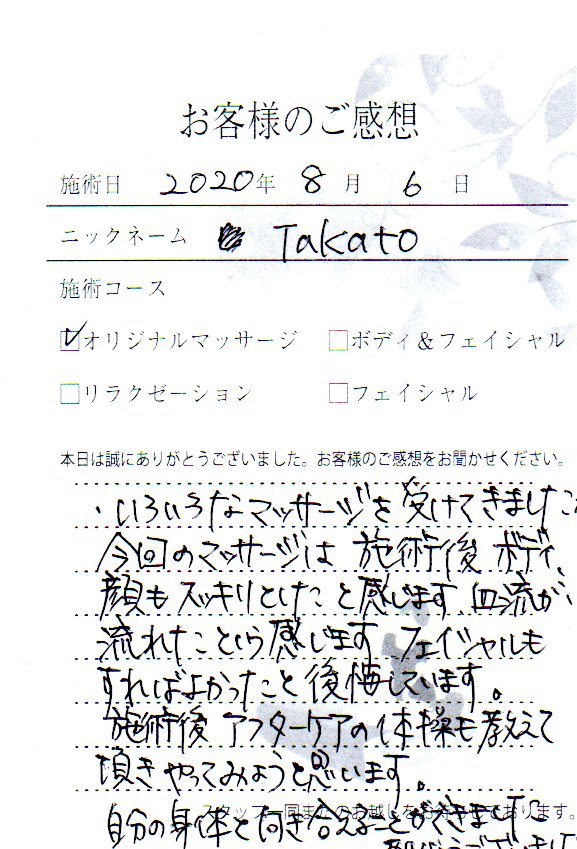 お客様のご感想
施術日 2020年 8月 6日
ニックネーム Takato
施術コース
オリジナルマッサージ ボディ&フェイシャル
リラクゼーション フェイシャル
本日は誠にありがとうございました。お客様のご感想をお聞かせください。
・いろいろなマッサージを受けてきました
今回のマッサージは 施術後 ボディ、
顔もスッキリとしたこと感じます 血流が
流れたこという感じします フェイシャルも
すればよかったこと後悔しています。
施術後 アフターケアの体操も教えて
頂きやってみようと思います。
スタッフ一同またのお越しをお待ちしております。
自分の身体と向き合えることができまして
ありがとうございまし